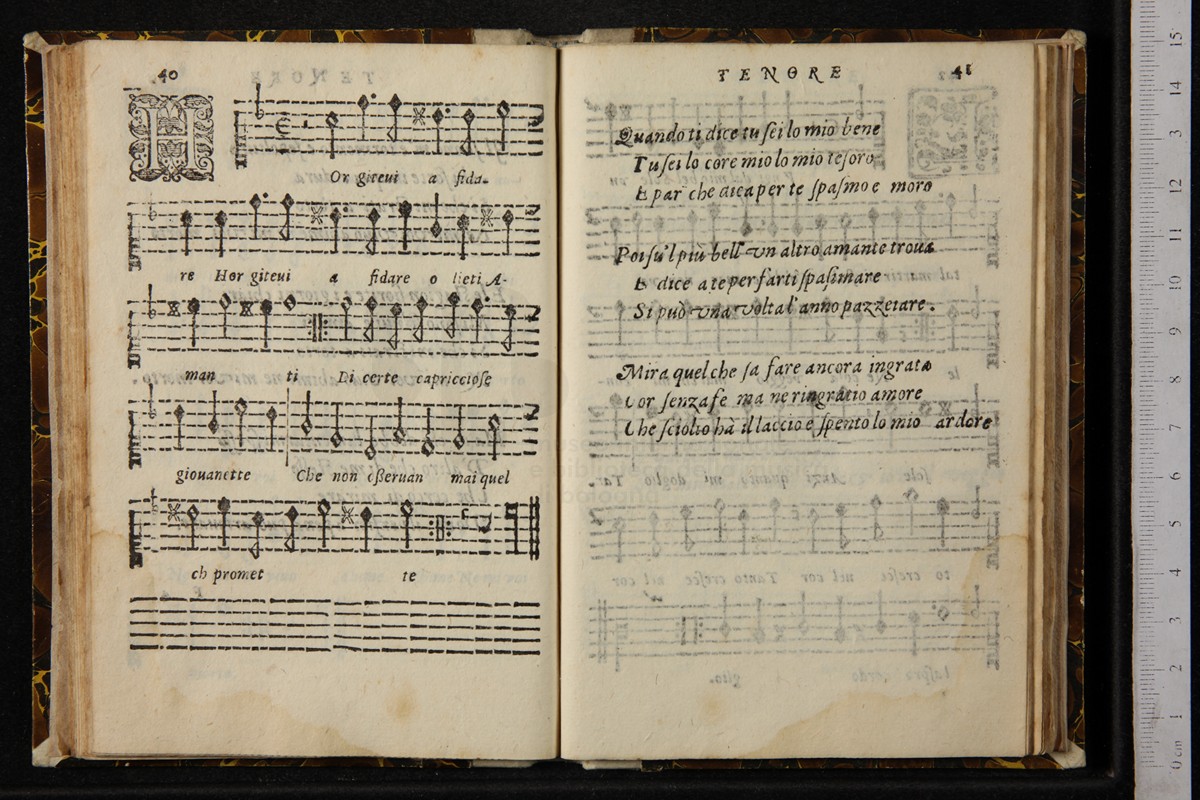 40
H
Or giteui a fida-
re Hor giteui a fidare o lieti A-
man ti Di certe capricciose
giouanette Che non osseruan mai quel
ch promet te
TENORE 41
Quando ti dice tu sei lo mio bene
Tu sei lo core mio lo mio tesoro
E par che dica per te spasmo e moro
Poi su'l più bell vn altro amante troua
E dice a te per farti spasimare
Si può vna volta l'anno pazzeiare.
Mira quel che sa fare ancora ingrata
Cor senza fe ma ne ringratio amore
Che sciolto hà il laccio e spento lo mio ardore